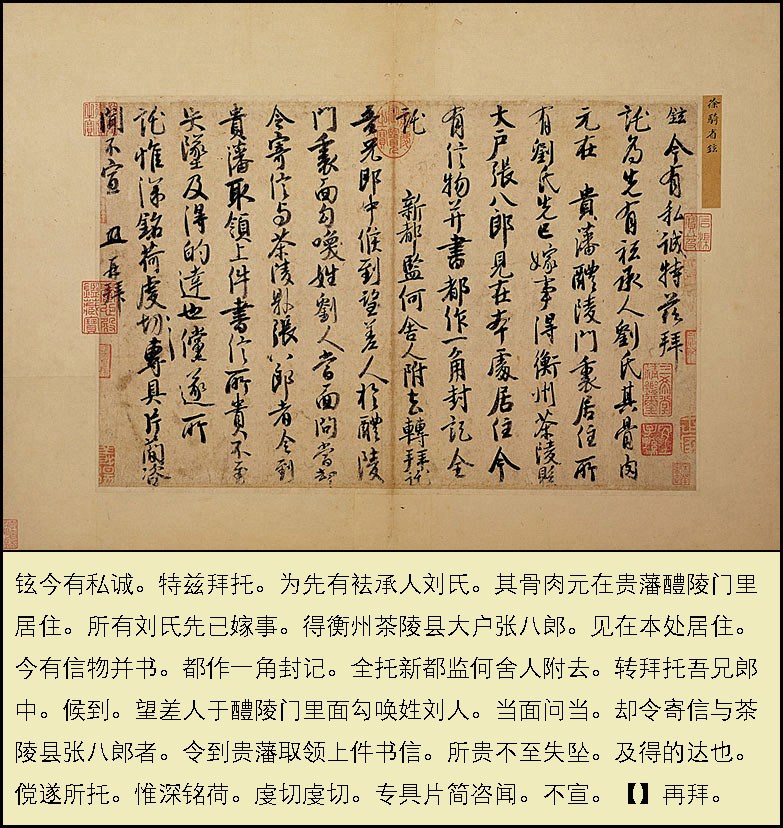 徐騎省鉉
鉉今有私誠特茲拜
託為先有祛承人劉氏其骨肉
元在 貴藩醴陵門裏居住所
有劉氏先已嫁事得衡州茶陵縣
大戶張八郎見在本處居住今
有信物并書都作一角封記全
託 新都監何舍人附去轉拜託
吾兄郎中候到望差人於醴陵
門裏面勾喚姓劉人當面問當却
令寄信与茶陵縣張八郎者令到
貴藩取領上件書信所貴不至
失墜及得的達也儻遂所
託惟深銘荷虔切專具片簡咨
聞不宣 再拜
铉今有私诚。特兹拜托。为先有祛承人刘氏。其骨肉元在贵藩醴陵门里
居住。所有刘氏先已嫁事。得衡州茶陵县大户张八郎。见在本处居住。
今有信物并书。都作一角封记。全托新都监何舍人附去。转拜托吾兄郎
中。候到。望差人于醴陵门里面勾唤姓刘人。当面问当。却令寄信与茶
陵县张八郎者。令到贵藩取领上件书信。所贵不至失坠。及得的达也。
傥遂所托。惟深铭荷。虔切虔切。专具片简咨闻。不宣。【】再拜。